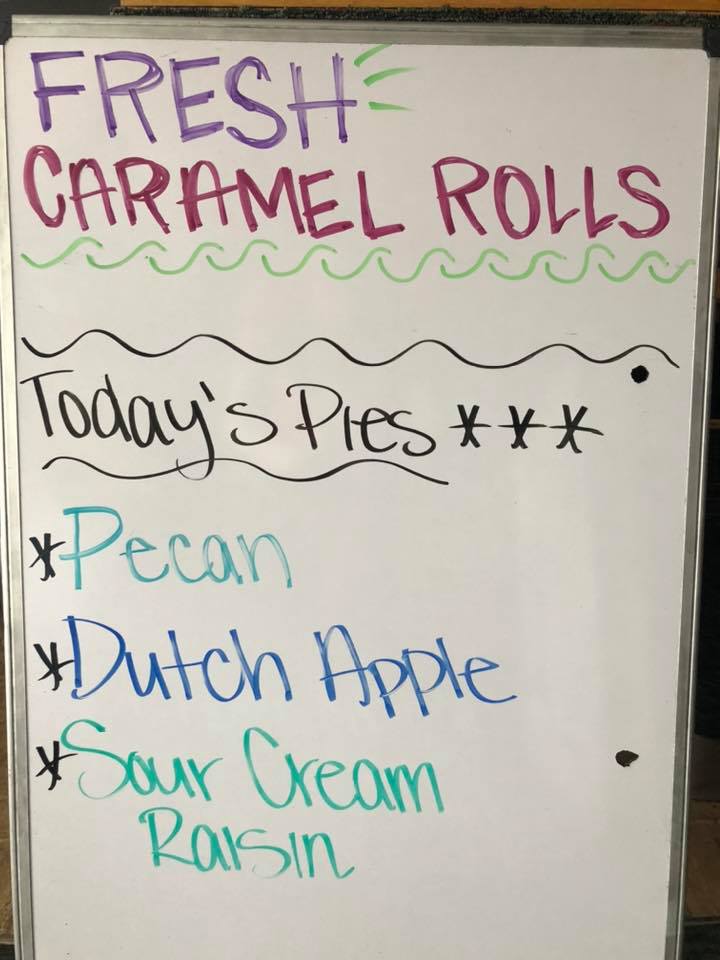 FRESH
CARAMEL ROLLS
Today's Pies ***
*Pecan
*Dutch Apple
*Sour Cream
Raisin